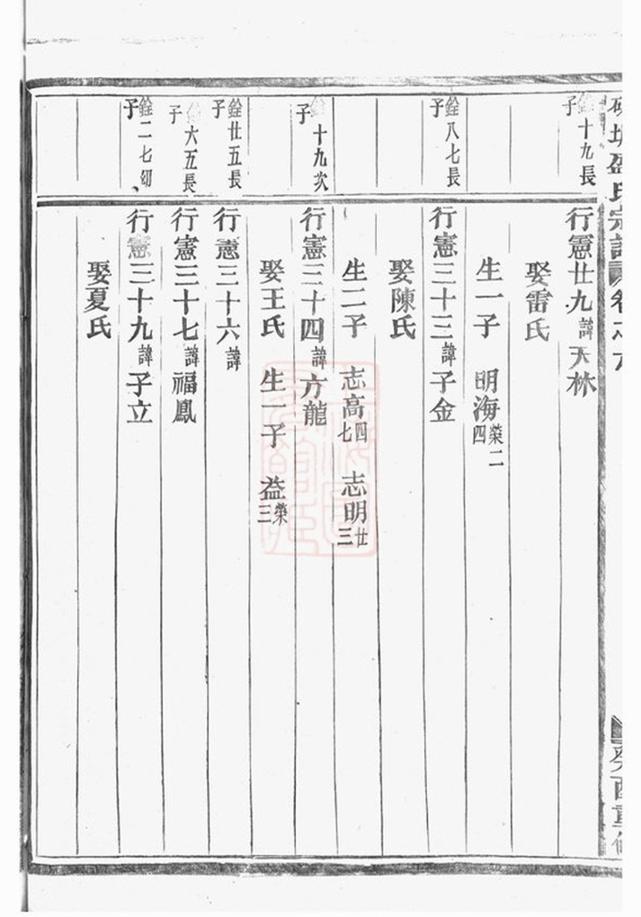 盈氏宗譜
癸酉重修
銓十九長子
行憲廿九諱天林
娶雷氏
生一子 明海榮二四
銓八七長子
行憲三十三諱子金
娶陳氏
生二子 志高四七 志明廿三
銓十九次子
行憲三十四諱方龍
娶王氏 生一子 益榮三
銓廿五長子
行憲三十六諱
銓六五長子
行憲三十七諱福鳳
銓二七幼子
行憲三十九諱子立
娶夏氏